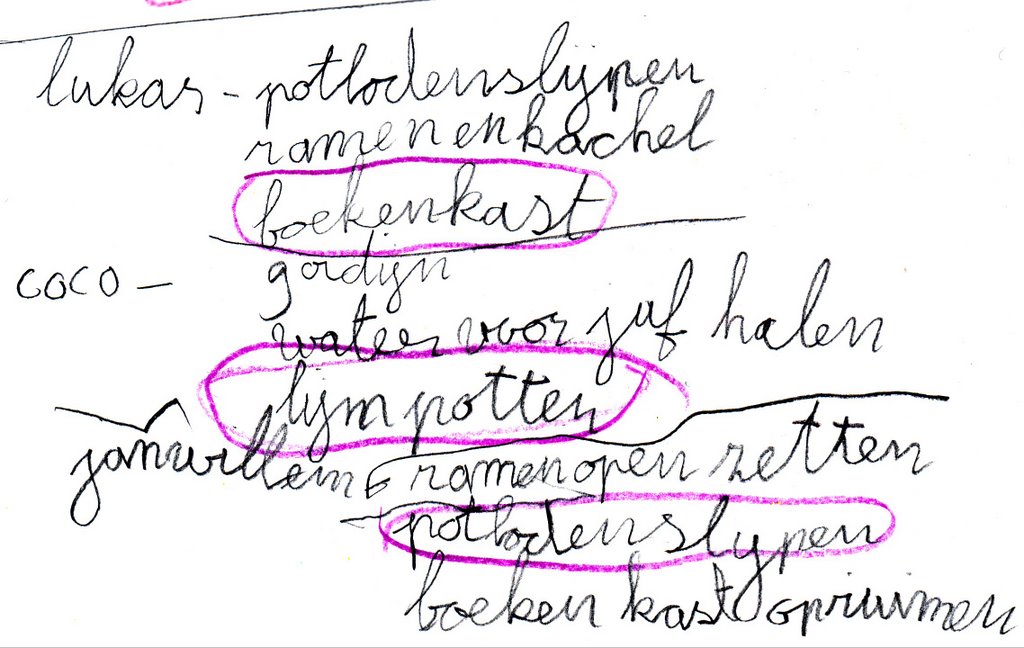 lukas - potlodenslijpen
ramen en kachel
boekenkast
coco - gordijn
water voor juf halen
lijm potten
janwillem ramen open zetten
potlodenslijpen
boeken kast opruimen